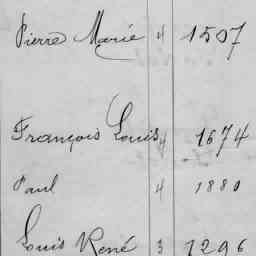 Pierre Marie 4 1507
François Louis 4 1674
Paul 4 1880
Louis René 3 1296